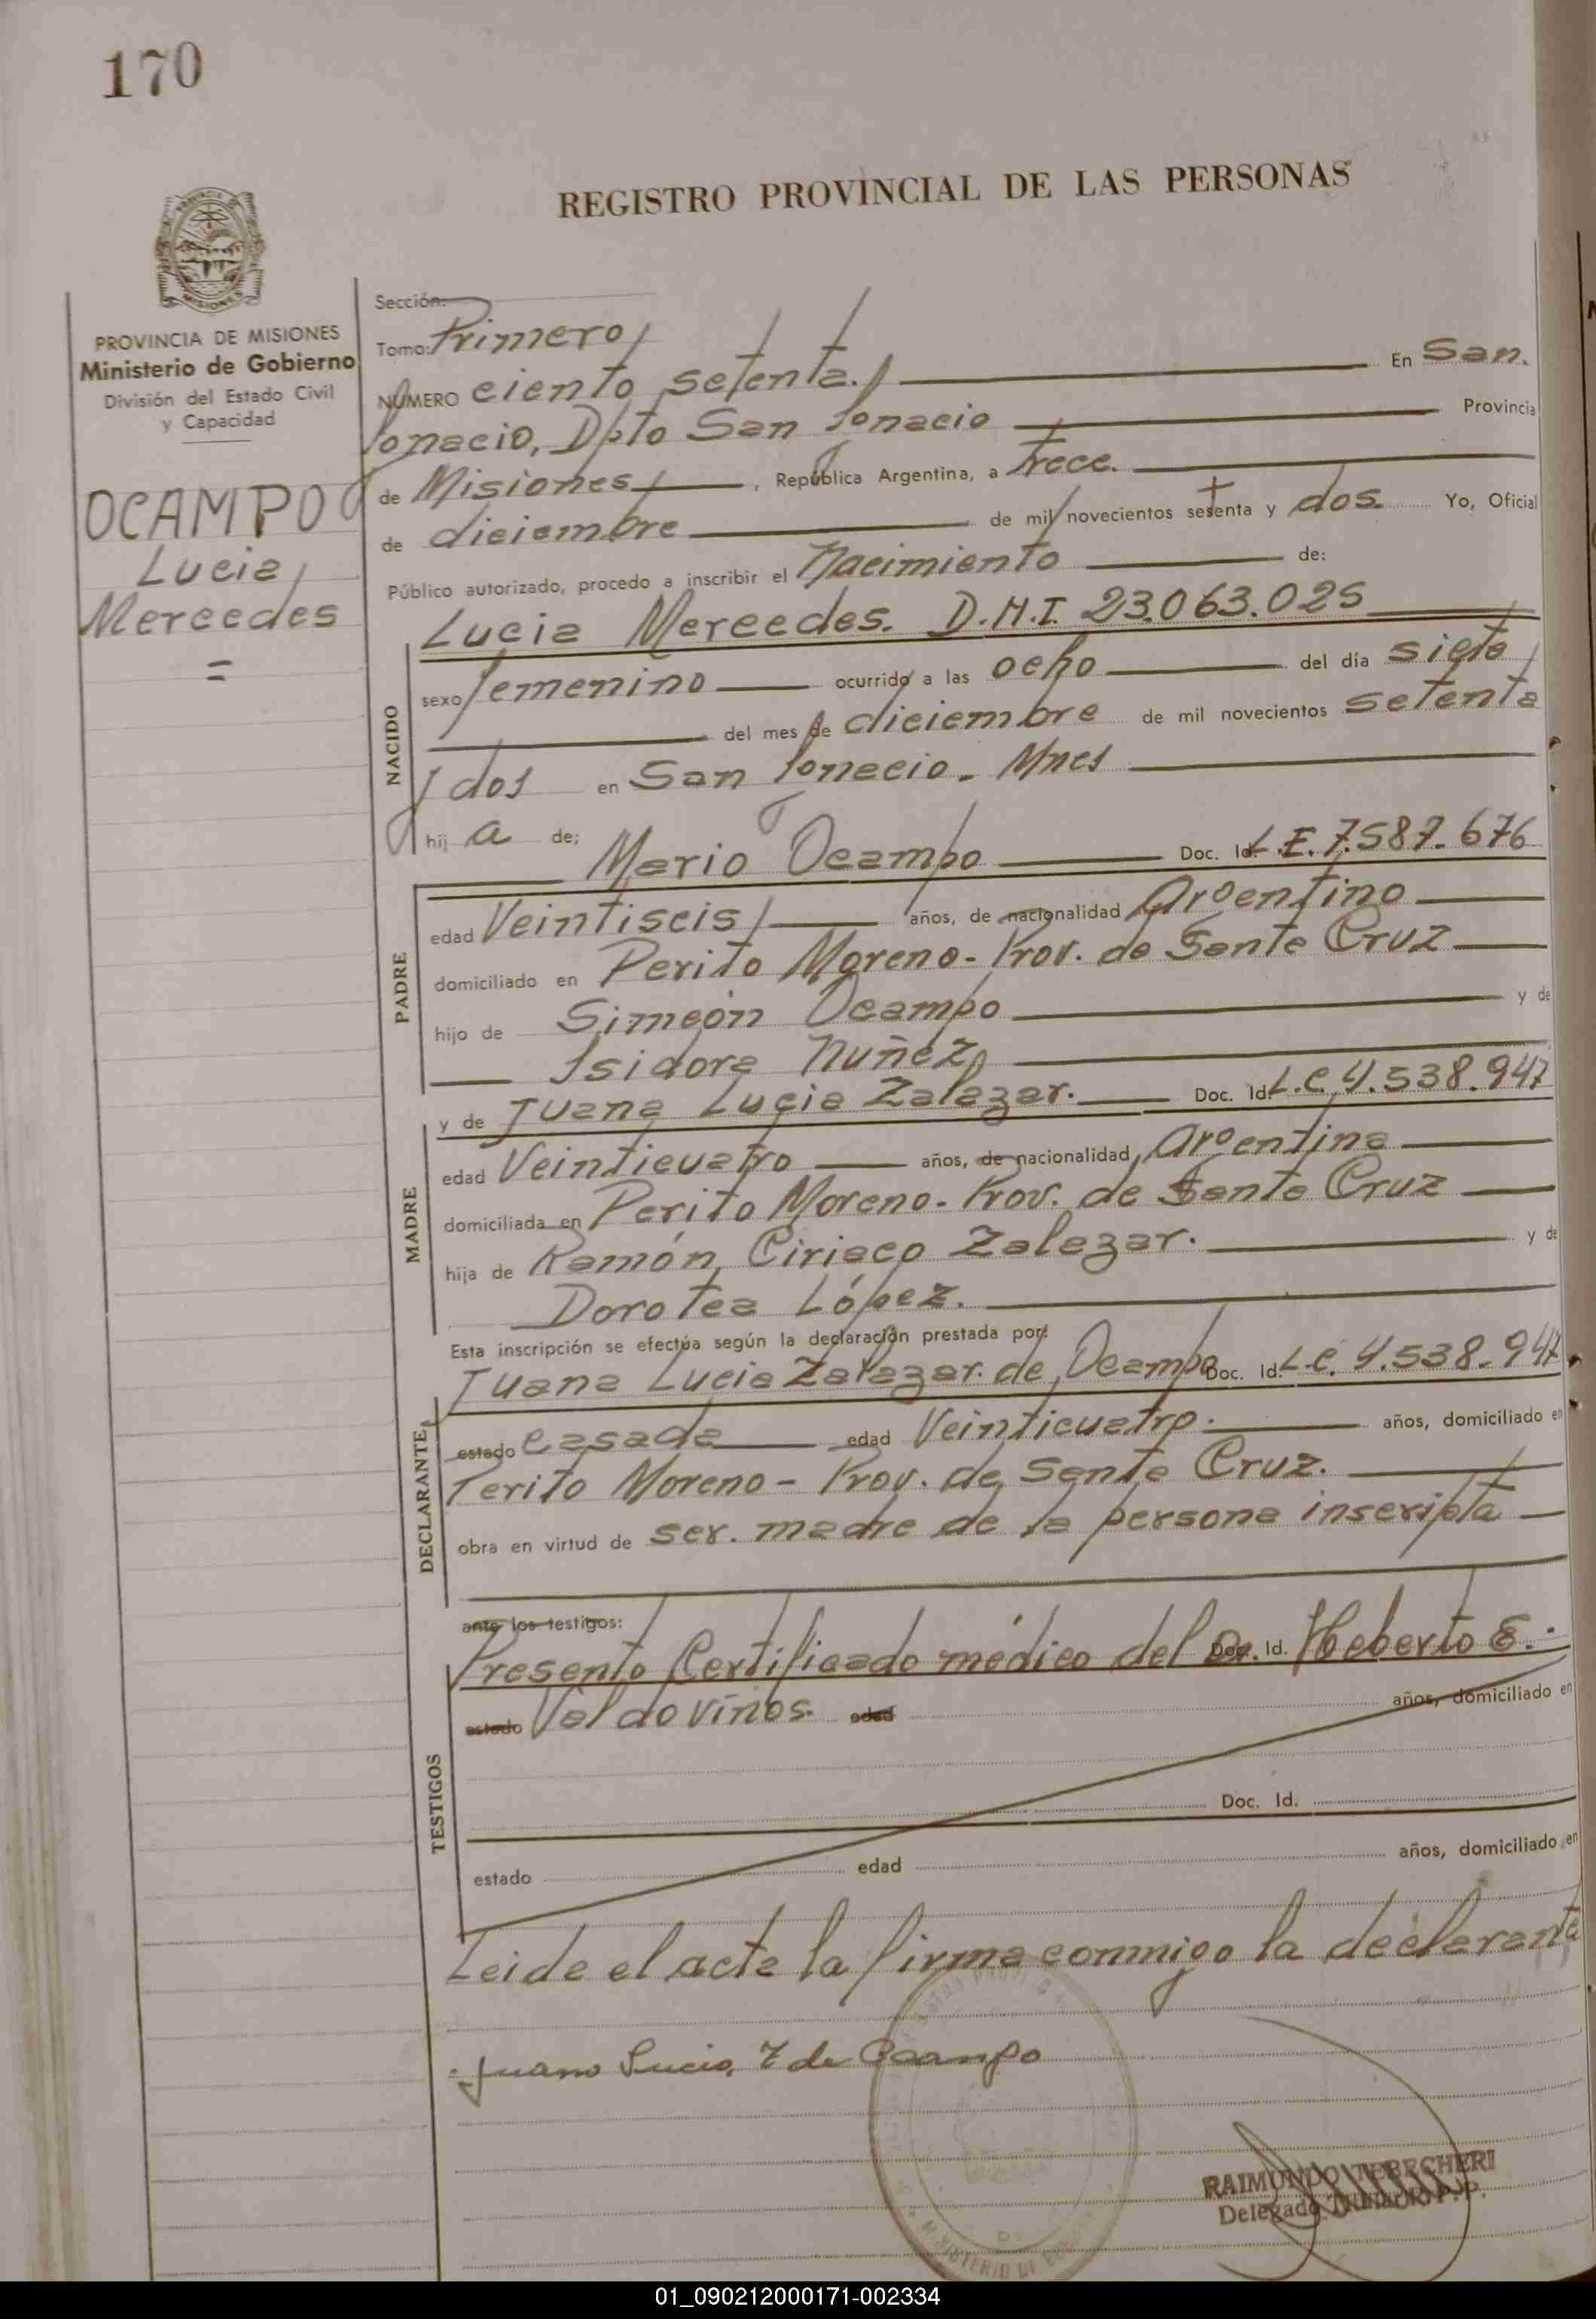 170
REGISTRO PROVINCIAL DE LAS PERSONAS
MISIONES
PROVINCIA DE MISIONES
Ministerio de Gobierno
División del Estado Civil
y Capacidad
OCAMPO
Lucia
Mercedes
=
Sección:
Tomo: Primero
NÚMERO ciento setenta. En San.
Ignacio, Dpto San Ignacio Provincia
de Misiones, República Argentina, a trece.
de diciembre de mil novecientos setenta y dos. Yo, Oficial
Público autorizado, procedo a inscribir el Nacimiento de:
Lucia Mercedes. D.N.I. 23.063.025
NACIDO
sexo femenino ocurrido a las ocho del día siete
del mes de diciembre de mil novecientos setenta
y dos en San Ignacio. Mnes
hij a de; Mario Ocampo Doc. Id. L.E. 7.587.676
PADRE
edad Veintiseis años, de nacionalidad Argentino
domiciliado en Perito Moreno - Prov. de Santa Cruz
hijo de Simeón Ocampo y de
Isidora Nuñez
y de Juana Lucia Zalazar. Doc. Id. L.C. 4.538.947
MADRE
edad Veinticuatro años, de nacionalidad Argentina
domiciliada en Perito Moreno - Prov. de Santa Cruz
hija de Ramón Ciriaco Zalazar. y de
Dorotea López.
Esta inscripción se efectúa según la declaración prestada por:
Juana Lucia Zalazar de Ocampo Doc. Id. L.C. 4.538.947
DECLARANTE
estado casada edad Veinticuatro. años, domiciliado en
Perito Moreno - Prov. de Santa Cruz.
obra en virtud de ser. madre de la persona inscripta
ante los testigos:
Presento Certificado médico del Dr. Doc. Id. Heberto E.
TESTIGOS
estado Valdoviños. edad años, domiciliado en
Doc. Id.
estado edad años, domiciliado en
Leida el acta la firma conmigo la declarante
Juana Lucia Z de Ocampo
MINISTERIO DE
RAIMUNDO
Delegado
01_090212000171-002334